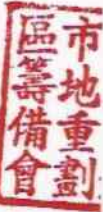 市地重劃
區籌備會